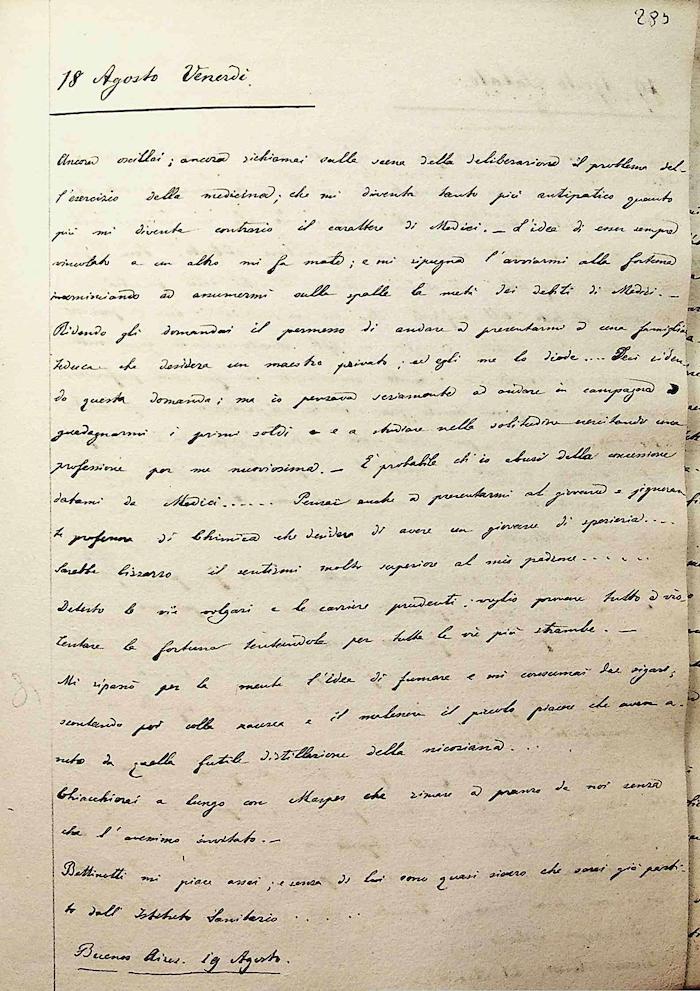 285
18 Agosto Venerdì.
Ancora oscillai; ancora richiamai sulla scena della deliberazione il problema del-
l'esercizio della medicina; che mi diventa tanto più antipatico quanto
più mi diventa contrario il carattere di Medici. — L'idea di esser sempre
vincolato a un altro mi fa male; e mi ripugna l'avviarmi alla fortuna
incominciando ad assumermi sulle spalle la metà dei debiti di Medici. —
Ridendo gli domandai il permesso di andare a presentarmi a una famiglia
tedesca che desidera un maestro privato; ed egli me lo diede....
do questa domanda; ma io pensava seriamente ad andare in campagna a
guadagnarmi i primi soldi e a studiare nella solitudine esercitando una
professione per me nuovissima. — È probabile ch'io abusi della concessione
datami da Medici...... Pensai anche a presentarmi al giovane e
professore di Chimica che desidera di avere un giovane di spezieria....
Sarebbe bizzarro il sentirmi molto superiore al mio padrone......
Detesto le vie volgari e le carriere prudenti: voglio provare tutto a vio-
lentare la fortuna tentandola per tutte le vie più strambe. —
Mi ripassò per la mente l'idea di fumare e mi consumai due sigari;
scontando poi colla nausea e il malessere il piccolo piacere che aveva a-
vuto da quella futile distillazione della nicoziana....
Chiacchierai a lungo con Maspes che rimase a pranzo da noi senza
che l'avessimo invitato. —
Bettinotti mi piace assai; e senza di lui sono quasi sicuro che sarei già parti-
to dall'Istituto Sanitario.....
Buenos Aires. 19 Agosto.